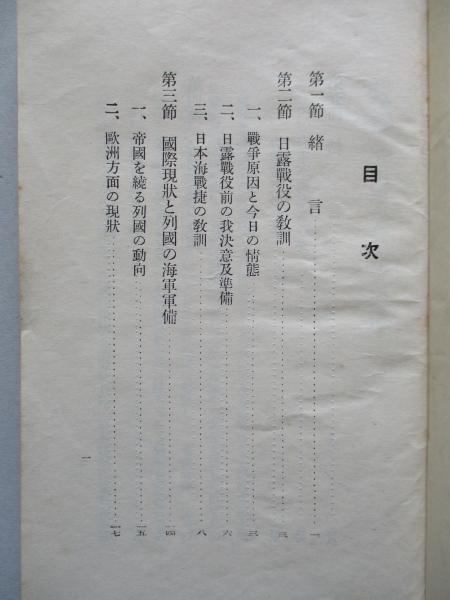 目次
第一節 緒言……一
第二節 日露戰役の教訓……三
一、戰爭原因と今日の情態……三
二、日露戰役前の我決意及準備……六
三、日本海戰捷の教訓……八
第三節 國際現狀と列國の海軍軍備……一四
一、帝國を繞る列國の動向……一五
二、歐洲方面の現狀……一七
一